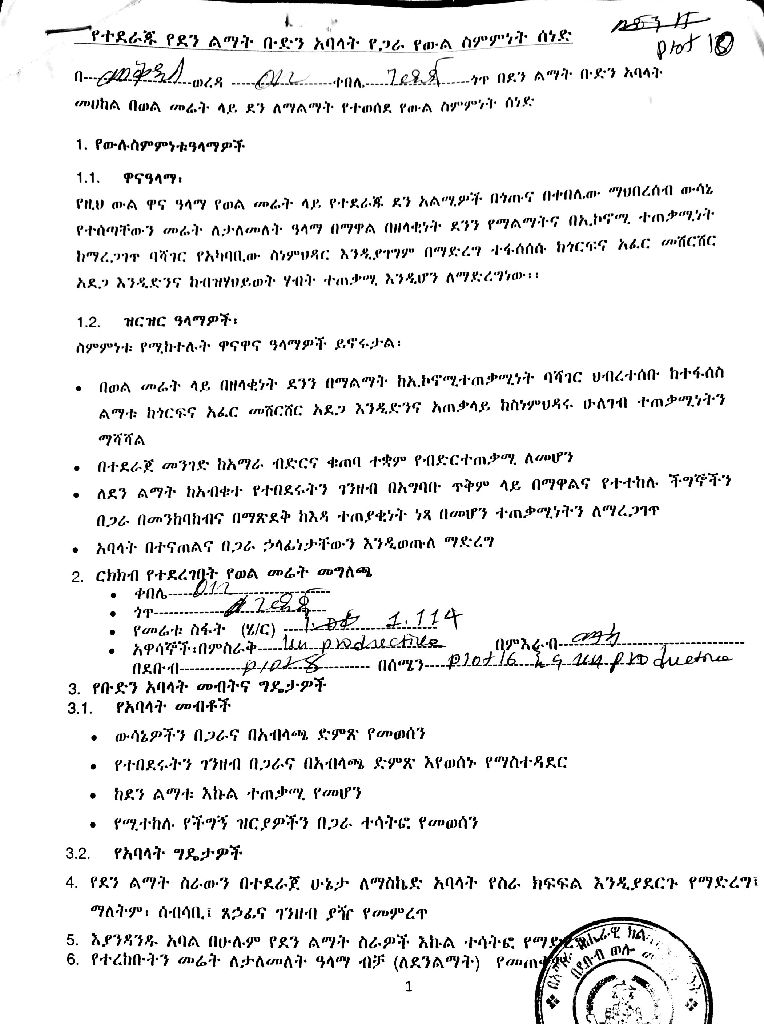 የተደራጁ የደን ልማት ቡድን አባላት የጋራ የውል ስምምነት ሰነድ
Plot 10
በ---ወረዳ ---ቀበሌ---ጎጥ በደን ልማት ቡድን አባላት
መሀከል በወል መሬት ላይ ደን ለማልማት የተወሰደ የውል ስምምነት ሰነድ
1. የውሉስምምነቱዓላማዎች
1.1. ዋናዓላማ፡
የዚህ ውል ዋና ዓላማ የወል መሬት ላይ የተደራጁ ደን አልሚዎች በጎጡና በቀበሌው ማህበረሰብ ውሳኔ
የተሰጣቸውን መሬት ለታለመለት ዓላማ በማዋል በዘላቂነት ደንን የማልማትና በኢኮኖሚ ተጠቃሚነት
ከማረጋገጥ ባሻገር የአካባቢው ስነምህዳር እንዲያገግም በማድረግ ተፋሰሰሱ ከጎርፍና አፈር መሸርሸር
አደጋ እንዲድንና ከብዝሃህይወት ሃብት ተጠቃሚ እንዲሆን ለማድረግነው፡፡
1.2. ዝርዝር ዓላማዎች፡
ስምምነቱ የሚከተሉት ዋናዋና ዓላማዎች ይኖሩታል፡
• በወል መሬት ላይ በዘላቂነት ደንን በማልማት ከኢኮኖሚተጠቃሚነት ባሻገር ህብረተሰቡ ከተፋሰስ
ልማቱ ከጎርፍና አፈር መሸርሸር አደጋ እንዲድንና አጠቃላይ ከስነምህዳሩ ሁለገብ ተጠቃሚነትን
ማሻሻል
• በተደራጀ መንገድ ከአማራ ብድርና ቁጠባ ተቋም የብድርተጠቃሚ ለመሆን
• ለደን ልማት ከአብቁተ የተበደሩትን ገንዘብ በአግባቡ ጥቅም ላይ በማዋልና የተተከሉ ችግኞችን
በጋራ በመንከባከብና በማጽደቅ ከእዳ ተጠያቂነት ነጻ በመሆን ተጠቃሚነትን ለማረጋገጥ
• አባላት በተናጠልና በጋራ ኃላፊነታቸውን እንዲወጡ ማድረግ
2. ርክክብ የተደረገበት የወል መሬት መግለጫ
• ቀበሌ---
• ጎጥ---
• የመሬቱ ስፋት (ሄ/ር) --- 1.114
• አዋሳኞች፡በምስራቅ- un productive በምእራብ---
በደቡብ- plot 8 --- በሰሜን- plot 16 ፣ un productive
3. የቡድን አባላት መብትና ግዴታዎች
3.1. የአባላት መብቶች
• ውሳኔዎችን በጋራና በአብላጫ ድምጽ የመወሰን
• የተበደሩትን ገንዘብ በጋራና በአብላጫ ድምጽ እየወሰኑ የማስተዳደር
• ከደን ልማቱ እኩል ተጠቃሚ የመሆን
• የሚተከሉ የችግኝ ዝርያዎችን በጋራ ተሳትፎ የመወሰን
3.2. የአባላት ግዴታዎች
4. የደን ልማት ስራውን በተደራጀ ሁኔታ ለማስኬድ አባላት የስራ ክፍፍል እንዲያደርጉ የማድረግ፣
ማለትም፣ ሰብሳቢ፣ ጸኃፊና ገንዘብ ያዥ የመምረጥ
5. እያንዳንዱ አባል በሁሉም የደን ልማት ስራዎች እኩል ተሳትፎ የማድረግ
6. የተረከቡትን መሬት ለታለመለት ዓላማ ብቻ (ለደንልማት)
በደቡብ ወሎ
1